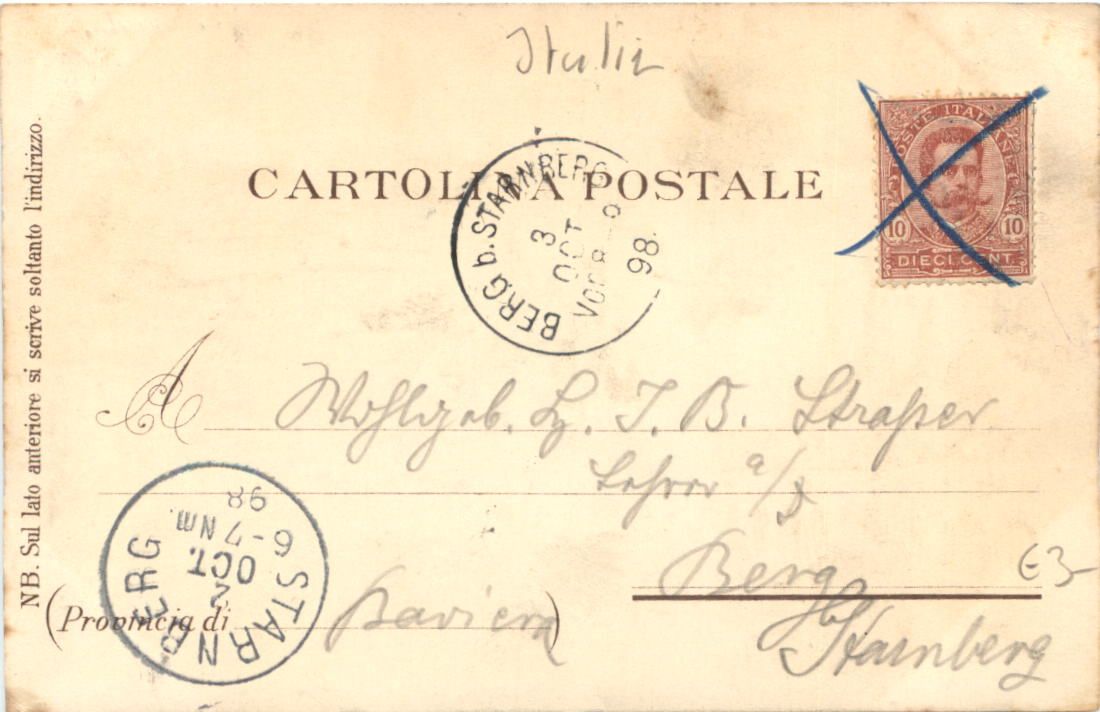 Italia
POSTE ITALIANE
10 10
DIECI CENT.
CARTOLINA POSTALE
BERG b. STARNBERG
3
OCT
VOR 8-9
98.
NB. Sul lato anteriore si scrive soltanto l'indirizzo.
A Wohlgeb. Hg. J. B. Straßer
Lehrer a/D
Berg
b/ Starnberg
(Provincia di Baviera)
STARNBERG
2
OCT.
6-7 NM.
98
€3-